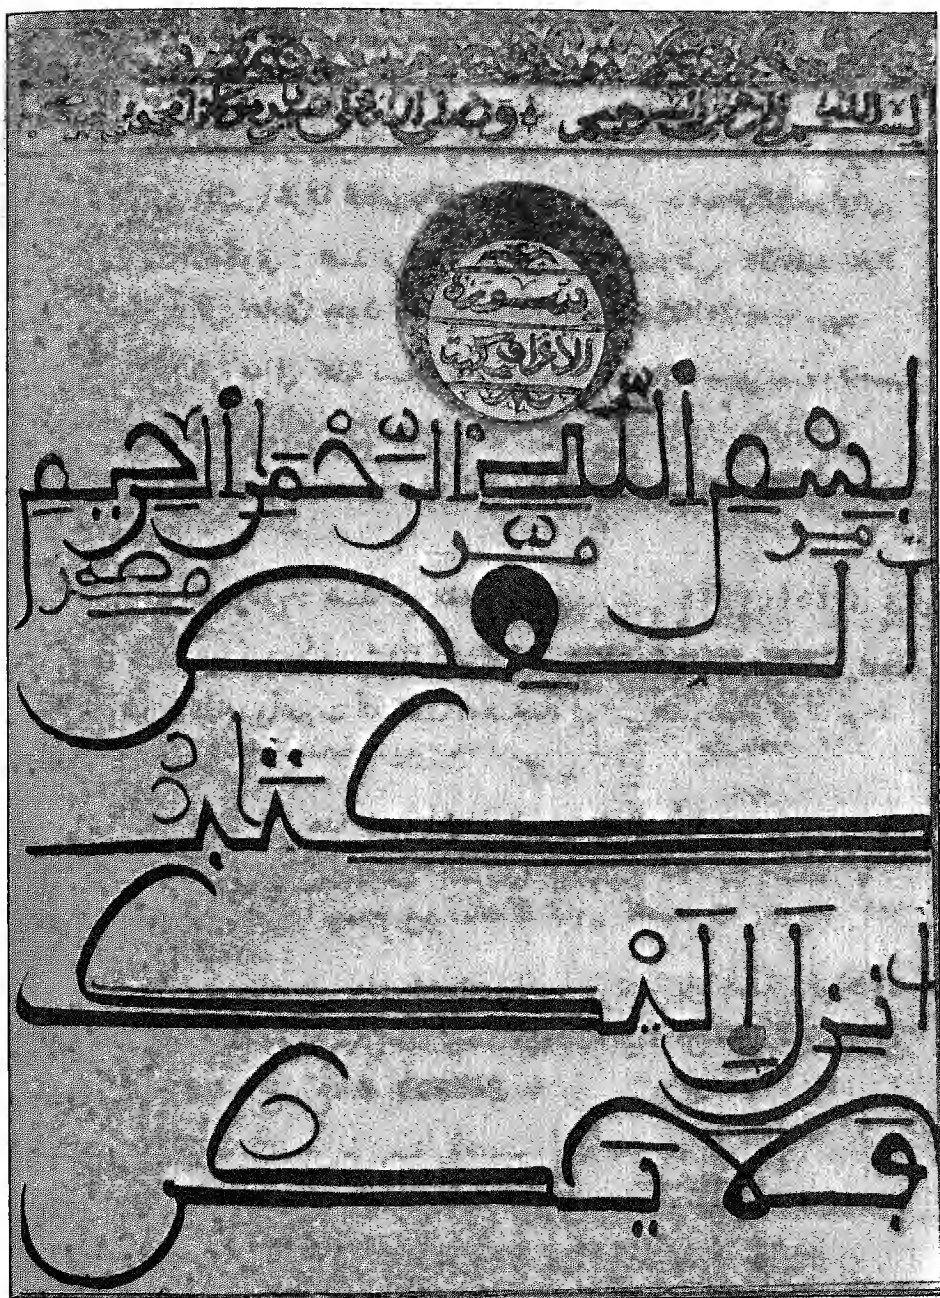 بسم الله الرحمن الرحيم وصلى الله على
سورة
الاعراف
بِسْمِ اللَّهِ الرَّحْمَنِ الرَّحِيمِ
الٓمٓصٓ
كتب
انزل اليك
فلا يكن